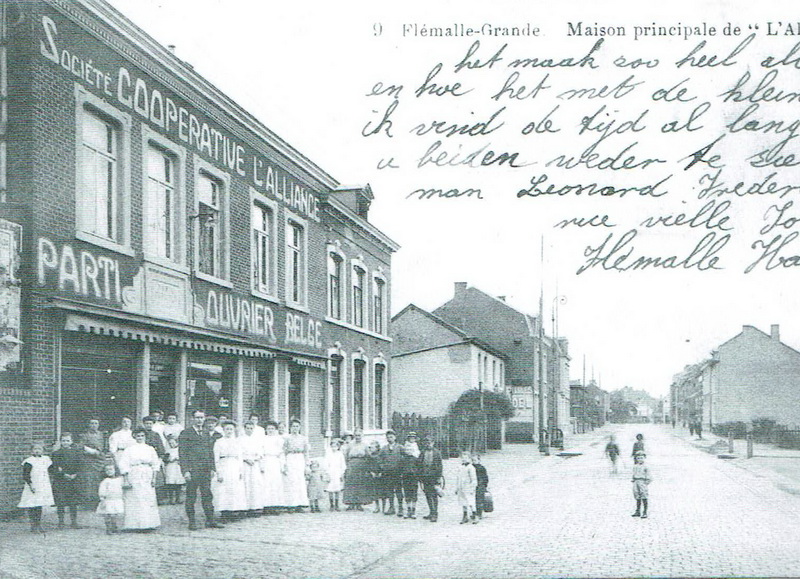 9 Flémalle-Grande. Maison principale de "L'Al
het maak zoo heel al
en hoe het met de klein
ik vind de tijd al lang
u beiden weder te zie
man Leonard Freder
rue vielle
Flémalle Ha
SOCIÉTÉ COOPERATIVE L'ALLIANCE
PARTI OUVRIER BELGE